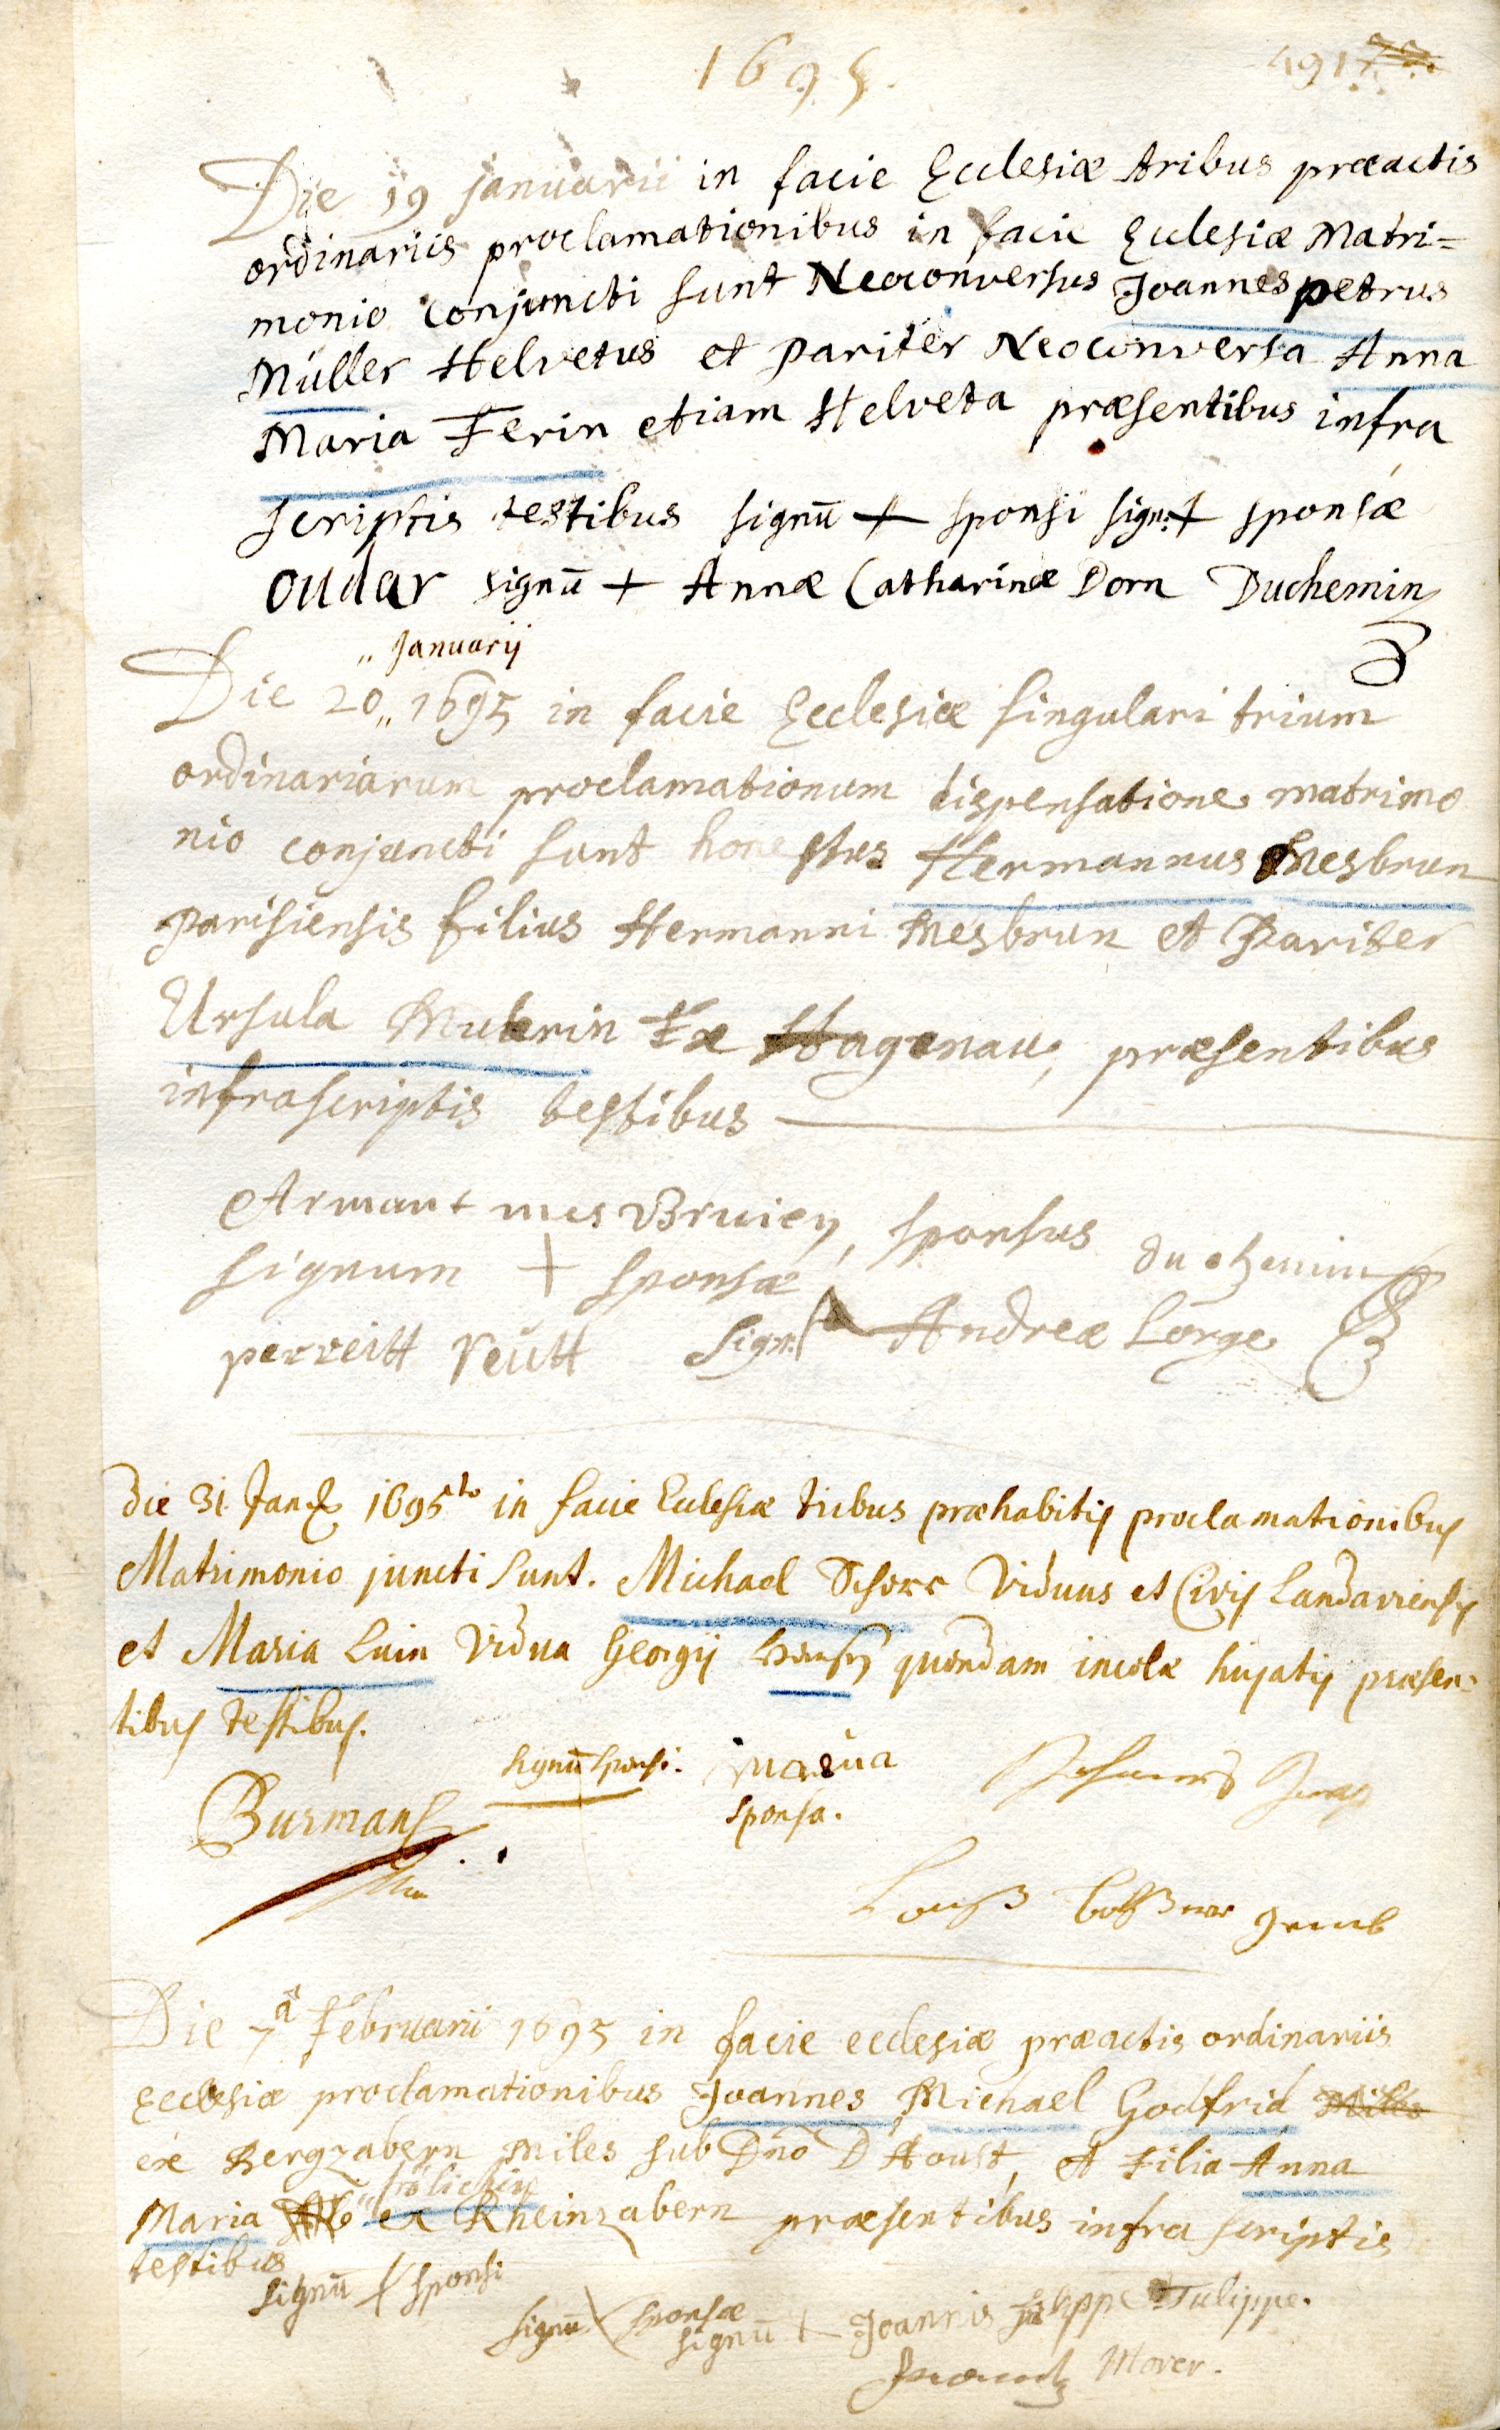 1695.
491
Die 19 januarii in facie Ecclesiæ tribus præactis
ordinariis proclamationibus in facie Ecclesiæ Matri=
monio conjuncti sunt Neoconversus Joannes petrus
Müller Helvetus et pariter Neoconversa Anna
Maria Ferin etiam Helveta præsentibus infra
scriptis testibus signū + sponsi sign: + sponsæ
oudar signū + Annæ Catharinæ Dorn Duchemin
„ Januarij
Die 20 „ 1695 in facie Ecclesiæ singulari trium
ordinariarum proclamationum dispensatione matrimo
nio conjuncti sunt honestus Hermannus Mesbrun
Parisiensis filius Hermanni Mesbrun et Pariter
Ursula Ex Hagenau, præsentibus
infrascriptis testibus
Armant mes Bruien, sponsus
signum + sponsæ du chemin
perreitt veütt sign: Andreæ Lorge
die 31 Jan 1695to in facie Ecclesiæ tribus præhabitis proclamationibus
Matrimonio juncti sunt. Michael Scherr Viduus et Civis Landaviensis
et Maria Luin Vidua Georgij quondam incolæ hujatis præsen=
tibus testibus.
signū sponsi. maria
sponsa.
Burman
Die 7a Februarii 1695 in facie ecclesiæ præactis ordinariis
Ecclesiæ proclamationibus Joannes Michael Godfrid Miles
ex Bergzabern Miles sub Dno D Houst, et Filia Anna
frölichin
Maria ex Rheinzabern præsentibus infra scriptis
testibus
signū + sponsi
signū sponsæ
signū + Joannis Tulippe.
Morer.